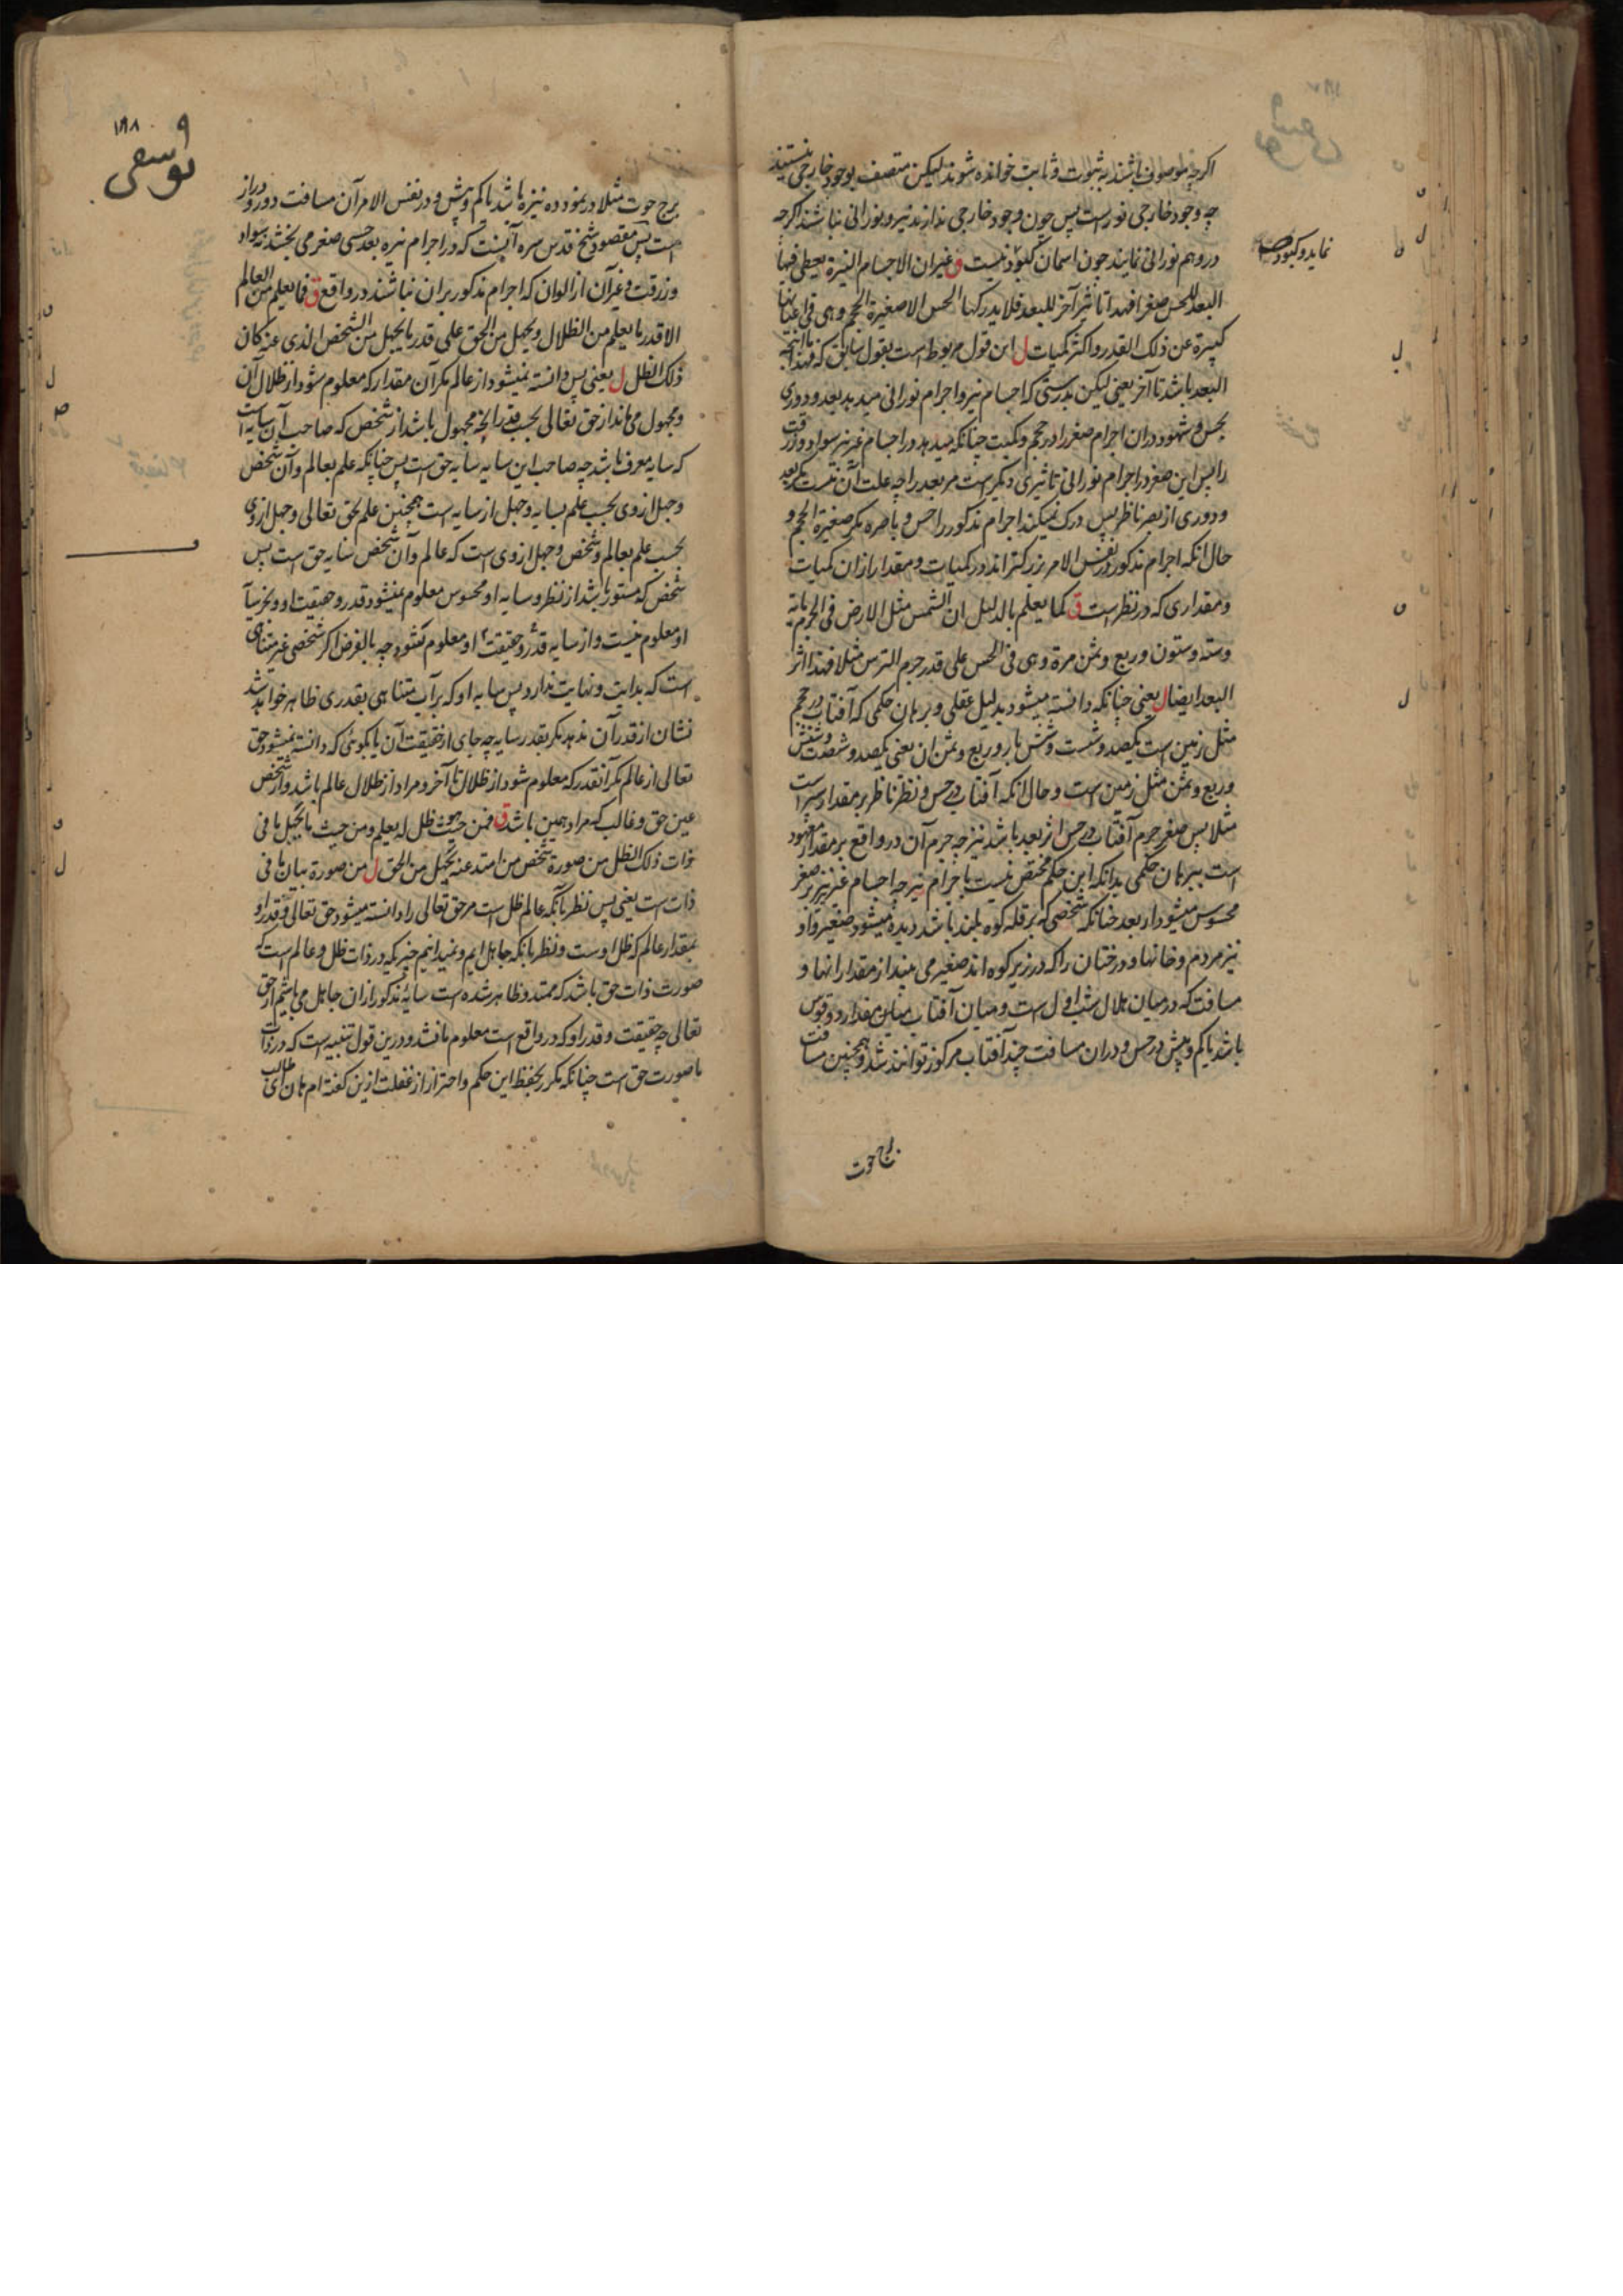 اگرچه موصوف باشند به ثبوت و ثابت خوانده شوند لیکن متصف بوجود خارجی نیستند
چه وجود خارجی نور است پس چون وجود خارجی ندارند نیر و نورانی نباشند اگرچه
در وهم نورانی نمایند چون اسمان کبود نیست ق غیر ان الاجسام النیرة یعطی فیها
نماید و کبود صح
البعد للحس صغرا فهذا تاثیر آخر للبعد فلا یدرکها الحس الا صغیرة الحجم و هی فی اعیانها
کبیرة عن ذلک القدر و اکثر کمیات ل این قول مربوط است بقول سابق که فهذا ما انتجه
البعد باشد تا آخر یعنی لیکن بدرستی که اجسام نیر و اجرام نورانی میدهد بعد و دوری
بحس و شهود دران اجرام صغر را در حجم و کمیت چنانکه میدهد در اجسام غیر نیر سواد و زرقت
را پس این صغر در اجرام نورانی تاثیری دیگر است مر بعد را چه علت آن نیست مگر بعد
و دوری از بصر ناظر پس درک نمیکند اجرام مذکور را حس و باصره مگر صغیرة الحجم و
حال انکه اجرام مذکور در نفس الامر بزرکتر اند در کمیات و مقدار ازان کمیات
و مقداری که در نظر است ق کما یعلم بالدلیل ان الشمس مثل الارض فی الجرم مایة
و ستة و ستون و ربع و ثمن مرة و هی فی الحس علی قدر جرم الترس مثلا فهذا اثر
البعد ایضا ل یعنی چنانکه دانسته میشود بدلیل عقلی و برهان حکمی که آفتاب در حجم
مثل زمین است یکصد و شست و شش بار و ربع و ثمن ان یعنی یکصد و شصت و شش
و ربع و ثمن مثل زمین است و حال انکه آفتاب در حس و نظر ناظر بر مقدار سپر است
مثلا پس صغر جرم آفتاب در حس اثر بعد باشد نیز چه جرم آن در واقع بر مقدار معهود
است ببرهان حکمی بدانکه این حکم مختص نیست باجرام نیر چه اجسام غیر نیز بر صغر
محسوس میشود از بعد چنانکه شخصی که بر قله کوه بلند باشد دیده میشود صغیر و او
نیز مردم و خانها و درختان را که در زیر کوه اند صغیر می بیند از مقدار انها و
مسافت که در میان هلال شب اول است و میان آفتاب بمقدار دو قوس
باشد یا کم و بیش در حس و دران مسافت چند آفتاب مرکوز توانند شد و همچنین مسافت
برج حوت
یوسفی
۱۹۸
برج حوت مثلا در نمود ده نیزه باشد یا کم و بیش و در نفس الامر آن مسافت دور و دراز
است پس مقصود شیخ قدس سره آنست که در اجرام نیره بعد حسی صغر می بخشد نه سواد
و زرقت و غیر آن از الوان که اجرام مذکور بران نباشند در واقع ق فما یعلم من العالم
الا قدر ما یعلم من الظلال و یجهل من الحق علی قدر ما یجهل من الشخص الذی عنه کان
ذلک الظل ل یعنی پس دانسته نمیشود از عالم مگر آن مقدار که معلوم شود از ظلال آن
و مجهول می ماند از حق تعالی بحسب قدر انچه مجهول باشد از شخص که صاحب آن سایه است
که سایه معرف باشد چه صاحب این سایه سایه حق است پس چنانکه علم بعالم و آن شخص
و جهل از وی بحسب علم بسایه و جهل از سایه است همچنین علم بحق تعالی و جهل از وی
بحسب علم بعالم و شخص و جهل از وی است که عالم و آن شخص سایه حق است پس
شخص که مستور باشد از نظر و سایه او محسوس معلوم نمیشود قدر و حقیقت او و بجز سایه
او معلوم نیست و از سایه قدر و حقیقت او معلوم نشود چه بالفرض اگر شخصی غیر متناهی
است که بدایت و نهایت ندارد پس سایه او که بر آب متناهی بقدری ظاهر خواهد شد
نشان از قدر آن ندهد مگر بقدر سایه چه جای از حقیقت آن یا بگوئی که دانسته نمیشود حق
تعالی از عالم مگر آنقدر که معلوم شود از ظلال تا آخر و مراد از ظلال عالم باشد و از شخص
عین حق و غالب که مراد همین باشد ق فمن حیث هو ظل له یعلم و من حیث ما یجهل ما فی
ذات ذلک الظل من صورة شخص من امتد عنه یجهل من الحق ل من صورة بیان ما فی
ذات است یعنی پس نظر بآنکه عالم ظل است مر حق تعالی را دانسته میشود حق تعالی و قدر او
بمقدار عالم که ظل اوست و نظر بانکه جاهل ایم و نمیدانیم چیزیکه در ذات ظل و عالم است که
صورت ذات حق باشد که ممتد و ظاهر شده است سایه مذکور ازان جاهل می باشیم از حق
تعالی چه حقیقت و قدر او که در واقع است معلوم ما نشد و درین قول تنبیه است که در ذات
ما صورت حق است چنانکه مکرر بحفظ این حکم و احتراز از غفلت ازین گفته ام هان ای طالب